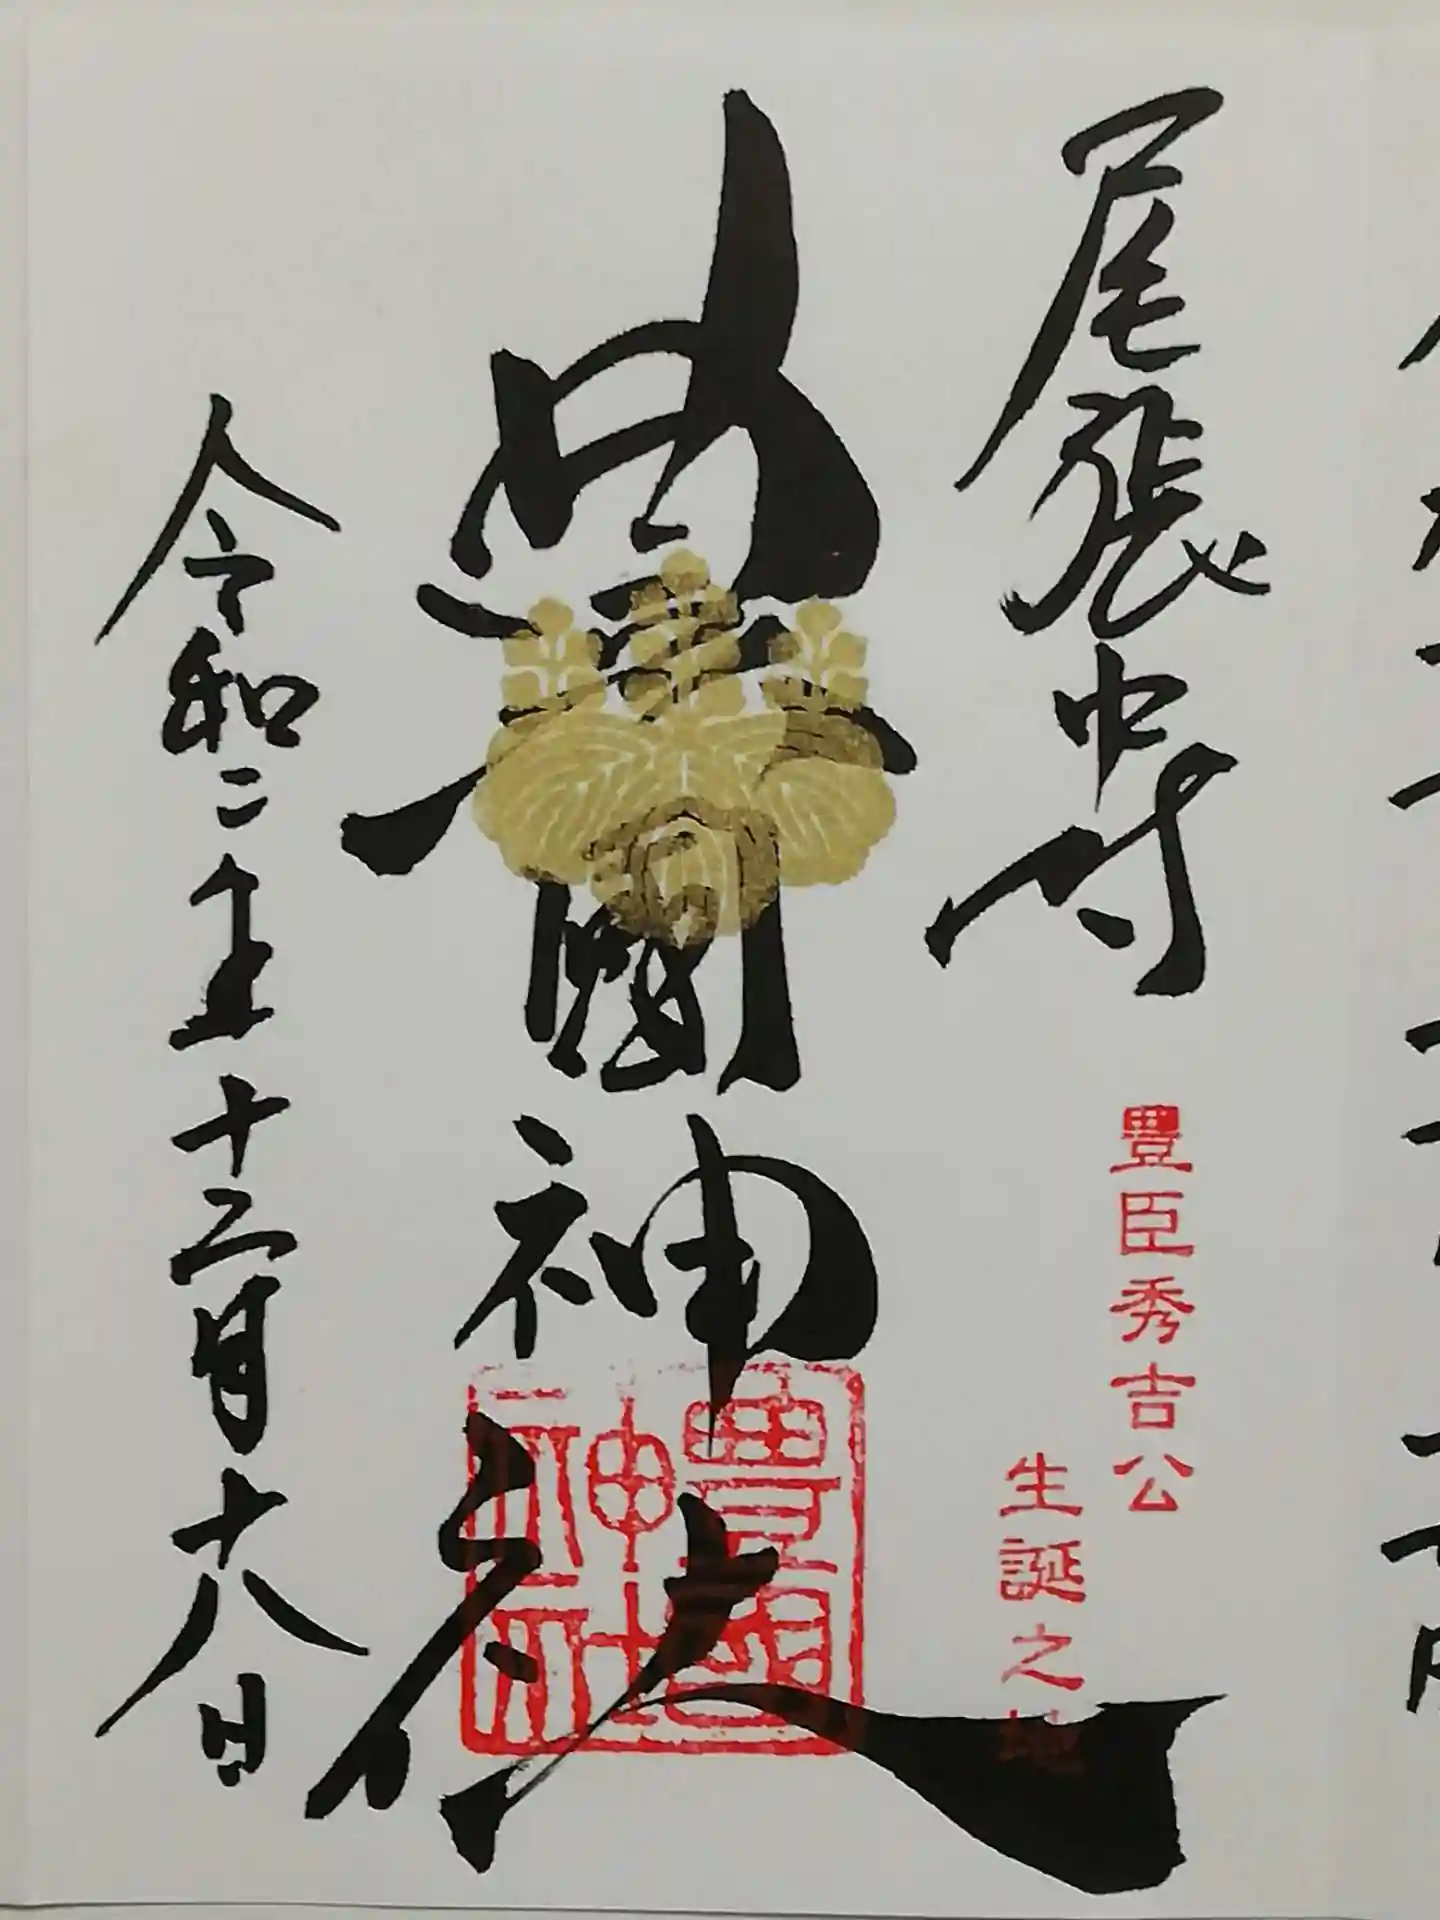 尾張中村
豊臣秀吉公
生誕之地
豊國神社
豊國
神社
令和二年十二月十八日